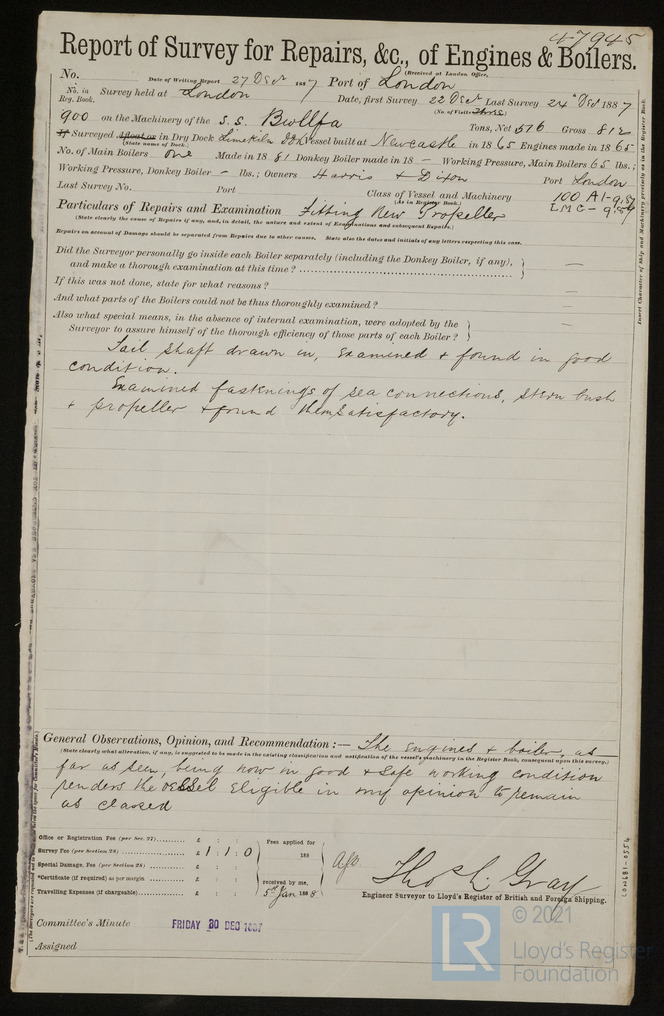 47945
Report of Survey for Repairs, &c., of Engines & Boilers.
(Received at London Office,
No. Date of Writing Report 27 Decr 1887 Port of London
No. in Reg. Book. Survey held at London Date, first Survey 22 Decr Last Survey 24th Decr 1887
(No. of Visits Three)
900 on the Machinery of the S.S. Bwllfa Tons, Net 516 Gross 812
Surveyed Afloat or in Dry Dock Limekiln DD Vessel built at Newcastle in 1865 Engines made in 1865
(State name of Dock.)
No. of Main Boilers One Made in 1881 Donkey Boiler made in 18 — Working Pressure, Main Boilers 65 lbs.;
Working Pressure, Donkey Boiler — lbs.; Owners Harris & Dixon Port London
Last Survey No. Port Class of Vessel and Machinery 100 A1-9,87
(As in Register Book.) LMC-9,87
Particulars of Repairs and Examination Fitting New Propeller
(State clearly the cause of Repairs if any, and, in detail, the nature and extent of Examinations and subsequent Repairs.)
Repairs on account of Damage should be separated from Repairs due to other causes. State also the dates and initials of any letters respecting this case.
Did the Surveyor personally go inside each Boiler separately (including the Donkey Boiler, if any),
and make a thorough examination at this time? —
If this was not done, state for what reasons? —
And what parts of the Boilers could not be thus thoroughly examined? —
Also what special means, in the absence of internal examination, were adopted by the
Surveyor to assure himself of the thorough efficiency of those parts of each Boiler? —
Tail shaft drawn in, Examined & found in good
condition.
Examined fastenings of sea connections, Stern bush
& propeller & found them satisfactory.
Insert Character of Ship and Machinery precisely as in the Register Book.
General Observations, Opinion, and Recommendation:— The Engines & boiler, as
(State clearly what alteration, if any, is suggested to be made in the existing classification and notification of the vessel's machinery in the Register Book, consequent upon this survey.)
far as seen, being now in good & safe working condition
renders the vessel Eligible in my opinion to remain
as classed
Office or Registration Fee (per Sec. 27) £ : :
Survey Fee (per Section 28) £ 1 : 1 : 0
Special Damage Fee (per Section 28) £ : :
*Certificate (if required) as per margin £ : :
Travelling Expenses (if chargeable) £ : :
Fees applied for
188
received by me,
5th Jan 1888
Thos L. Gray
Engineer Surveyor to Lloyd's Register of British and Foreign Shipping.
LON681-0554
Committee's Minute FRIDAY 30 DEC 1887
Assigned
LR
© 2021
Lloyd's Register
Foundation